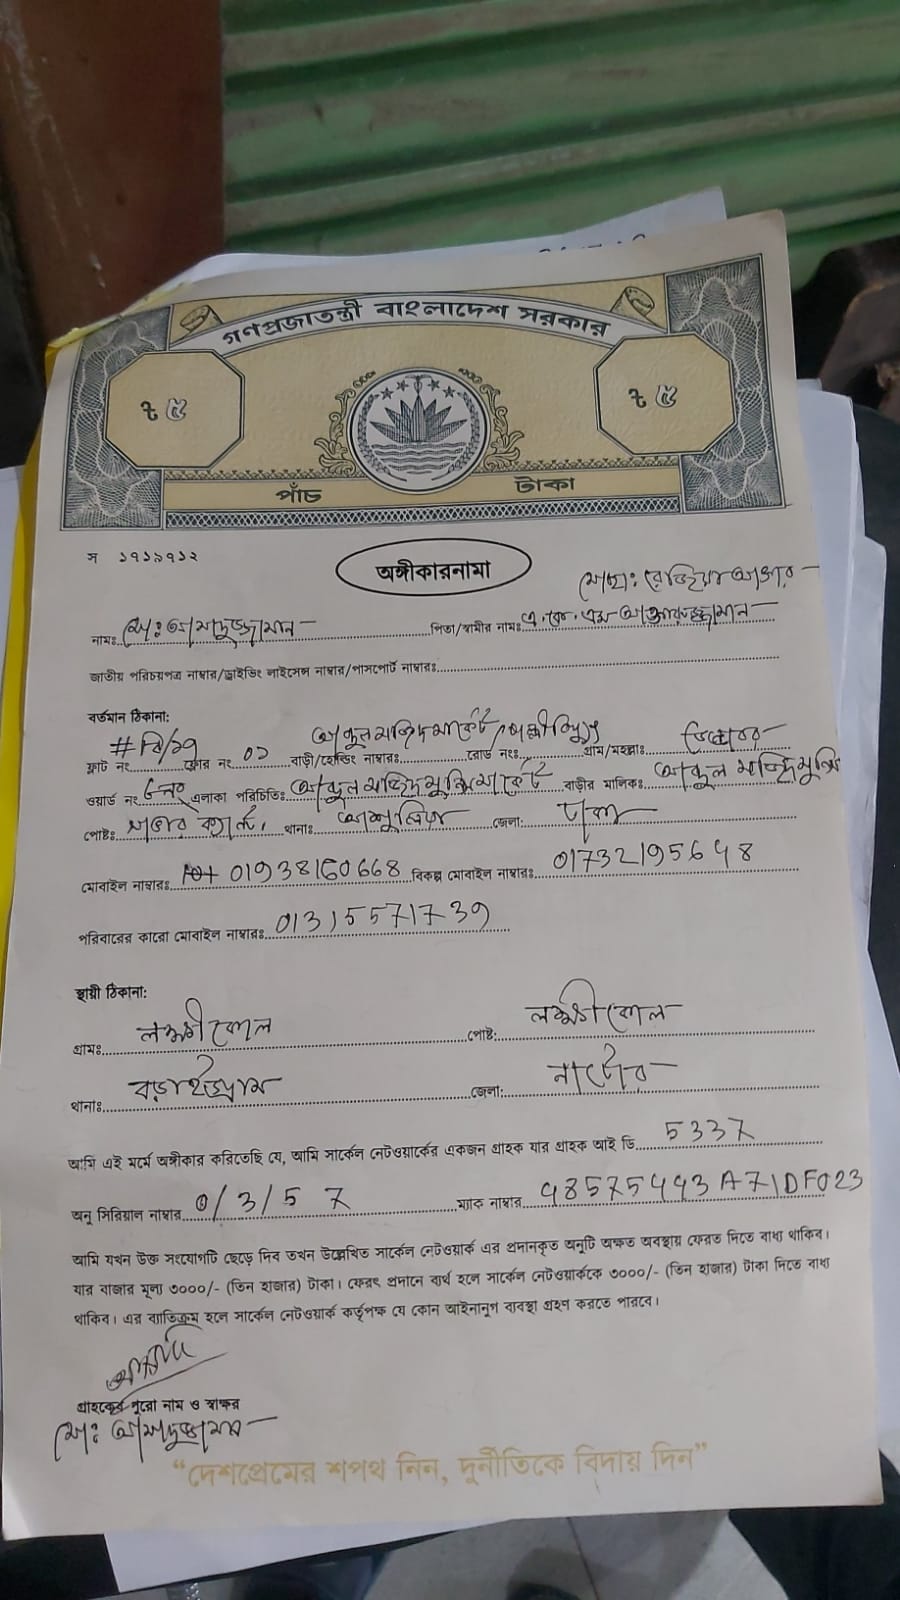 গণপ্রজাতন্ত্রী বাংলাদেশ সরকার
৳ ৫
৳ ৫
পাঁচ টাকা
স ১৭১৯৭১২
অঙ্গীকারনামা
মোছা: রেজিয়া আক্তার
নামঃ মো: আসাদুজ্জামান পিতা/স্বামীর নামঃ এ. কে. এম আক্তারুজ্জামান
জাতীয় পরিচয়পত্র নাম্বার/ড্রাইভিং লাইসেন্স নাম্বার/পাসপোর্ট নাম্বারঃ
বর্তমান ঠিকানা:
ফ্লাট নং ফ্লোর নং ০১ বাড়ী/হোল্ডিং নাম্বারঃ রোড নং গ্রাম/মহল্লাঃ
ওয়ার্ড নং এলাকা পরিচিতিঃ বাড়ীর মালিকঃ
পোষ্টঃ থানাঃ আশুলিয়া জেলা: ঢাকা
মোবাইল নাম্বারঃ 01938160668 বিকল্প মোবাইল নাম্বারঃ 01732195648
পরিবারের কারো মোবাইল নাম্বারঃ
স্থায়ী ঠিকানা:
গ্রামঃ লক্ষীকোল পোষ্ট: লক্ষীকোল
থানাঃ বড়াইগ্রাম জেলা: নাটোর
আমি এই মর্মে অঙ্গীকার করিতেছি যে, আমি সার্কেল নেটওয়ার্কের একজন গ্রাহক যার গ্রাহক আই ডি 5337
অনু সিরিয়াল নাম্বার 0/3/5 7 ম্যাক নাম্বার
আমি যখন উক্ত সংযোগটি ছেড়ে দিব তখন উল্লেখিত সার্কেল নেটওয়ার্ক এর প্রদানকৃত অনুটি অক্ষত অবস্থায় ফেরত দিতে বাধ্য থাকিব।
যার বাজার মূল্য ৩০০০/- (তিন হাজার) টাকা। ফেরৎ প্রদানে ব্যর্থ হলে সার্কেল নেটওয়ার্ককে ৩০০০/- (তিন হাজার) টাকা দিতে বাধ্য
থাকিব। এর ব্যতিক্রম হলে সার্কেল নেটওয়ার্ক কর্তৃপক্ষ যে কোন আইনানুগ ব্যবস্থা গ্রহণ করতে পারবে।
গ্রাহকের পুরো নাম ও স্বাক্ষর
মো: আসাদুজ্জামান
“দেশপ্রেমের শপথ নিন, দুর্নীতিকে বিদায় দিন”